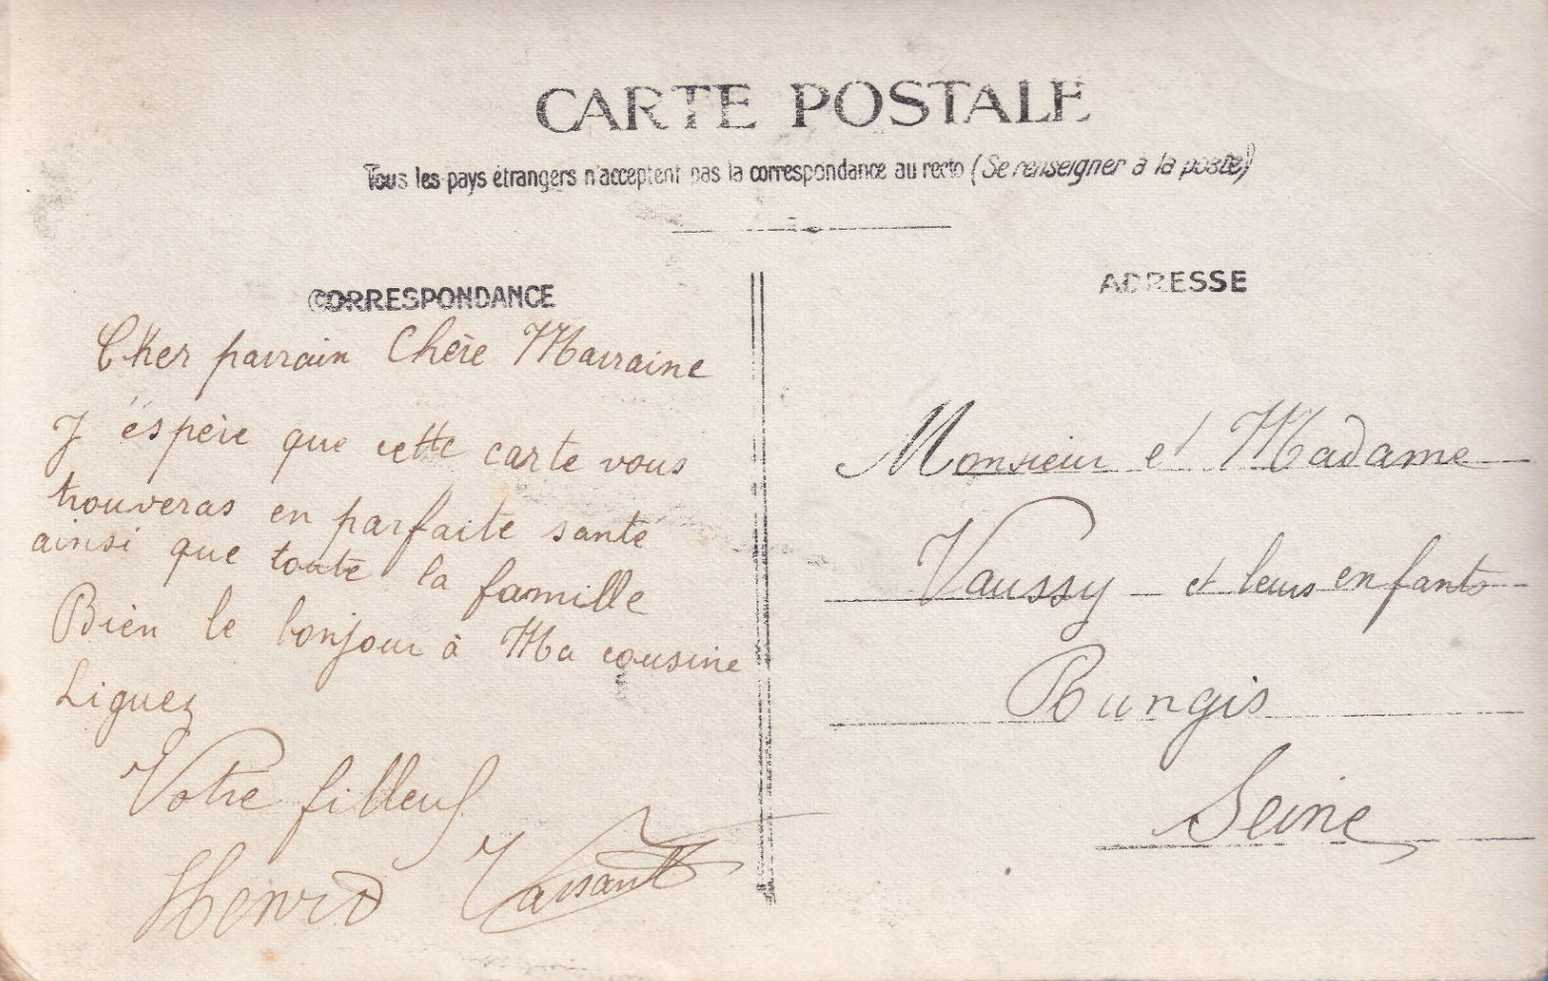 CARTE POSTALE
Tous les pays étrangers n'acceptent pas la correspondance au recto (Se renseigner à la poste)
CORRESPONDANCE
Cher parrain Chère Marraine
J'éspère que cette carte vous
trouveras en parfaite santé
ainsi que toute la famille
Bien le bonjour à Ma cousine
Liguez
Votre filleul
Henri
ADRESSE
Monsieur et Madame
Vaussy et leurs enfants
Rungis
Seine